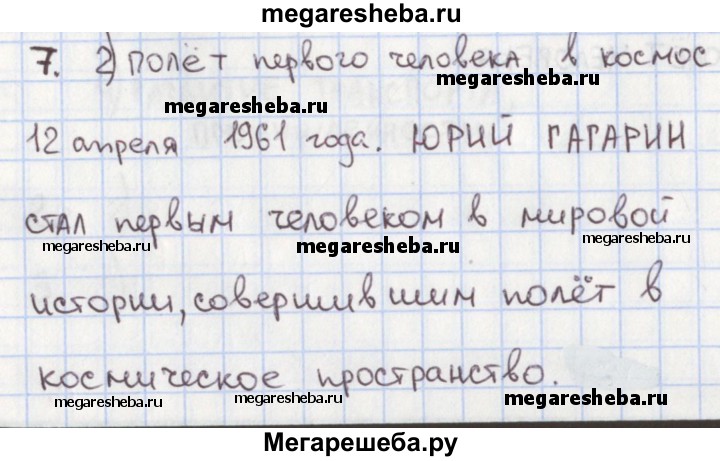 megaresheba.ru
7. 2) Полёт первого человека в космос
megaresheba.ru
megaresheba.ru
12 апреля 1961 года. ЮРИЙ ГАГАРИН
стал первым человеком в мировой
megaresheba.ru
megaresheba.ru
megaresheba.ru
истории, совершившим полёт в
космическое пространство.
megaresheba.ru
megaresheba.ru
megaresheba.ru
Мегарешеба.ру